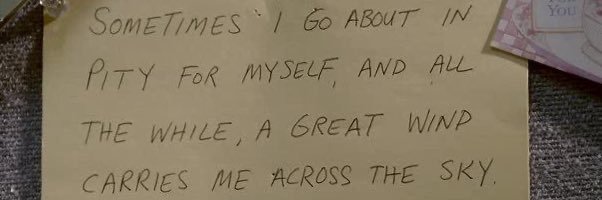 SOMETIMES I GO ABOUT IN
PITY FOR MYSELF, AND ALL
THE WHILE, A GREAT WIND
CARRIES ME ACROSS THE SKY.
YOU